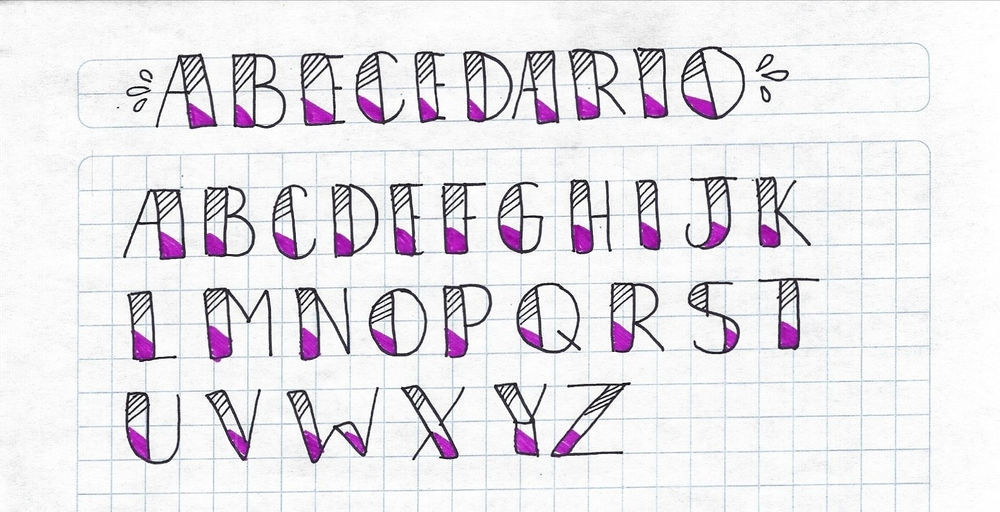 ABECEDARIO
A B C D E F G H I J K
L M N O P Q R S T
U V W X Y Z